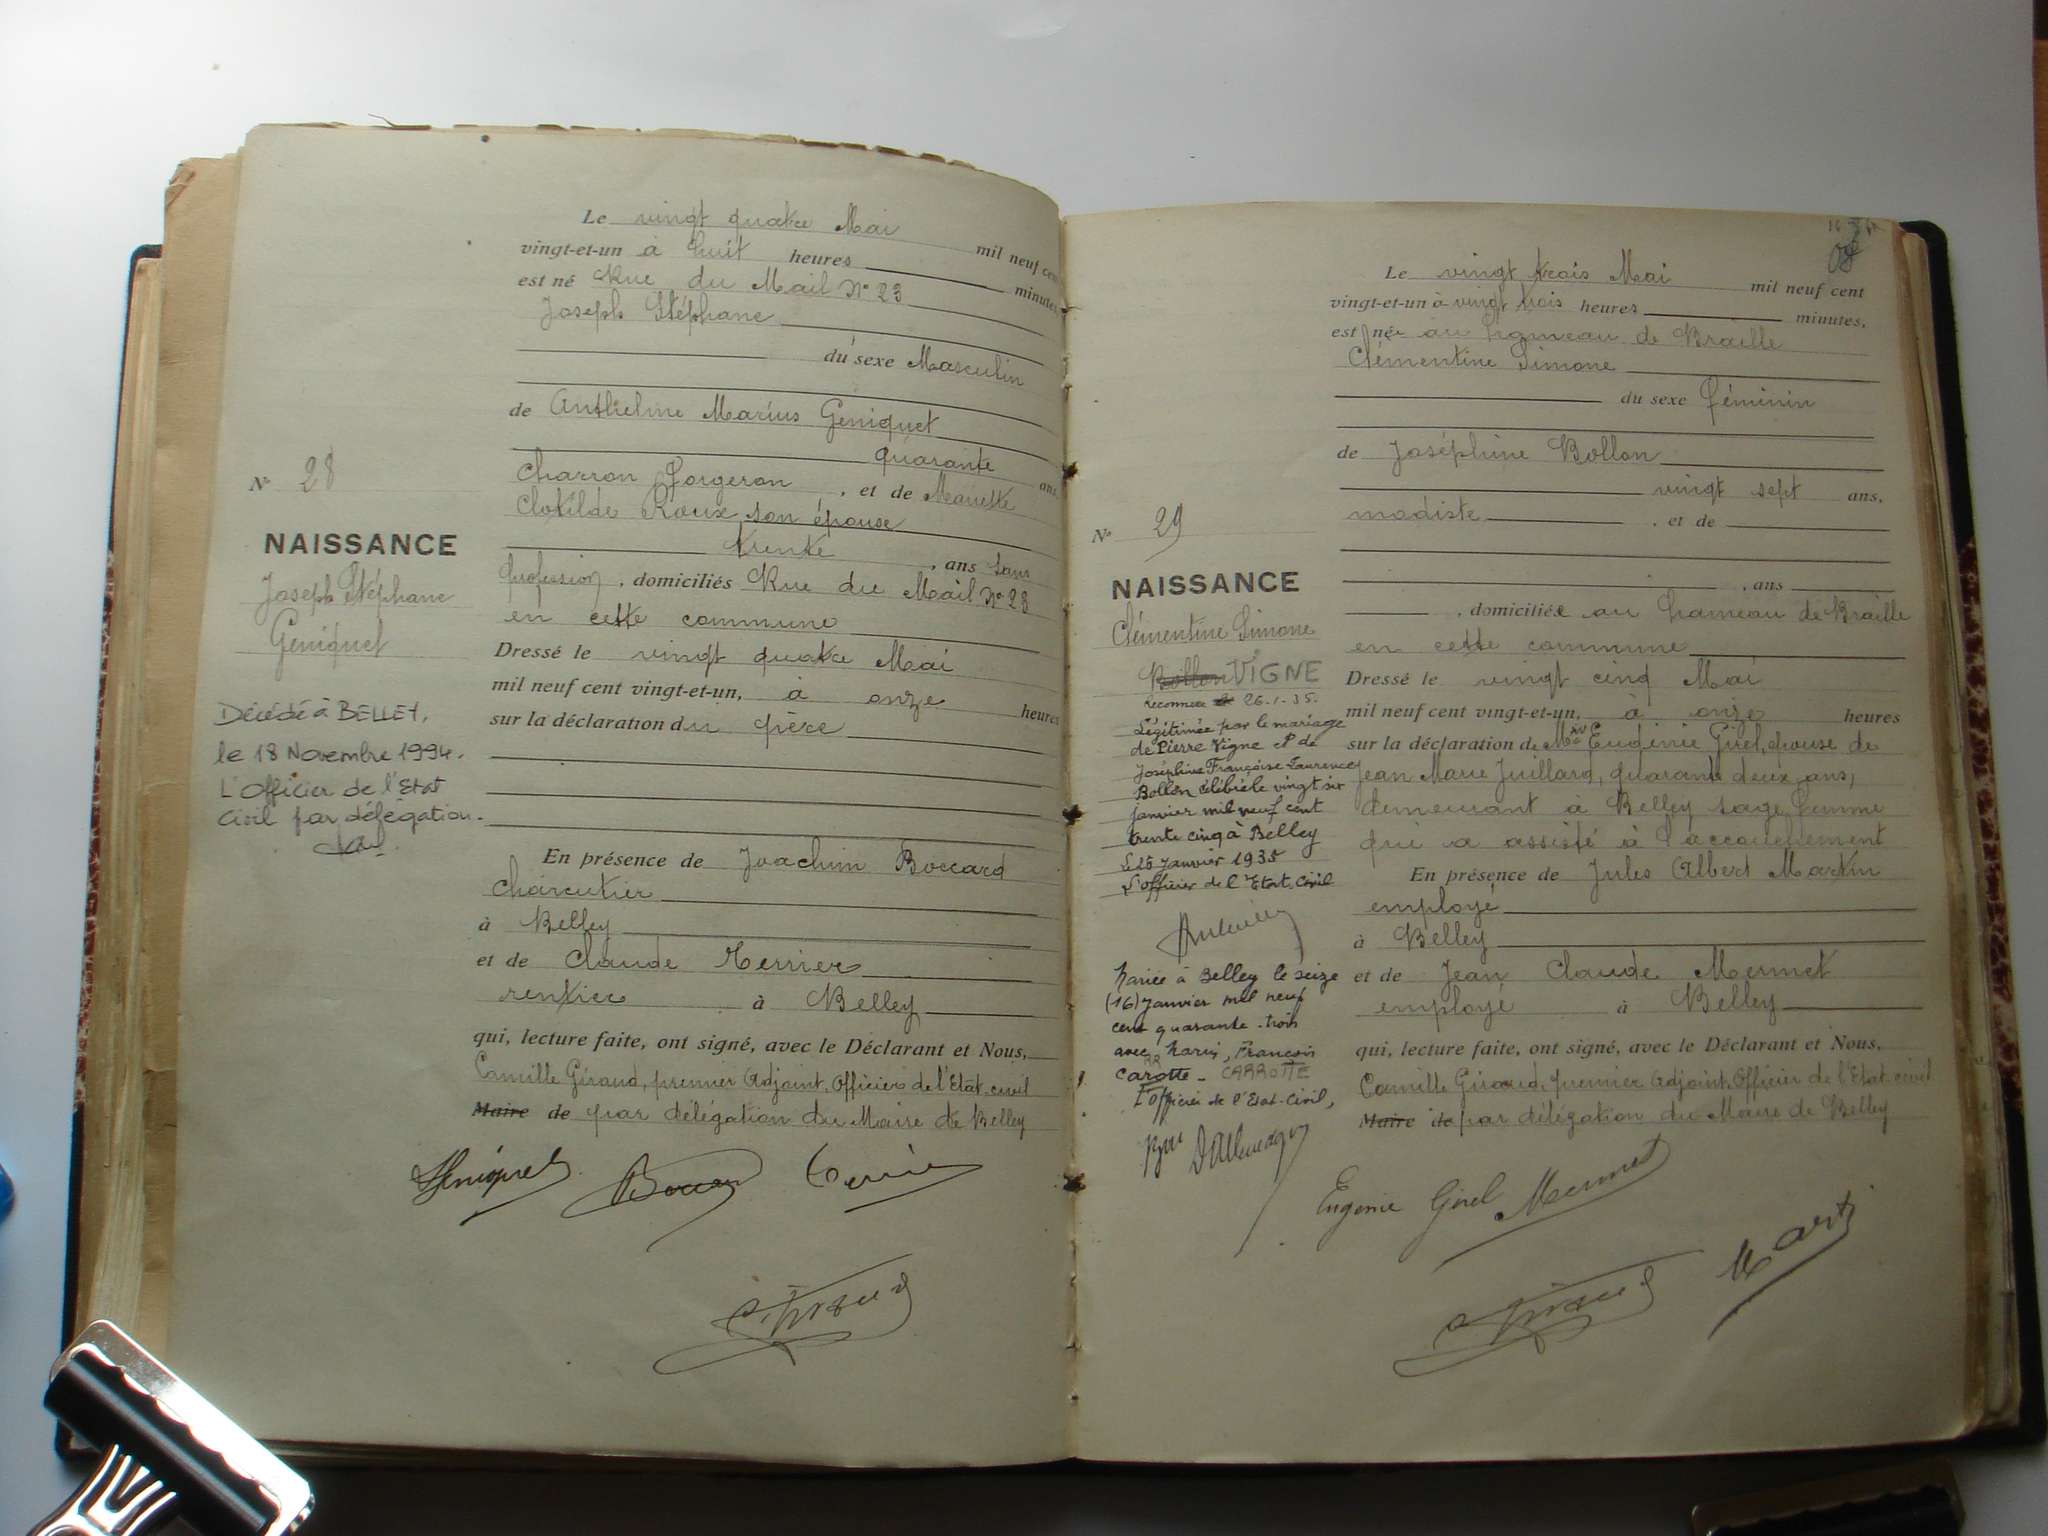 Le vingt quatre Mai mil neuf cent
vingt-et-un à huit heures minutes
est né Rue du Mail N° 23
Joseph Stéphane
du sexe Masculin
de Anthelme Marius Geniquet
quarante ans,
charron forgeron, et de Mariette
Clotilde Roux son épouse
trente, ans sans
profession, domiciliés Rue du Mail N° 28
en cette commune
Dressé le vingt quatre Mai
mil neuf cent vingt-et-un, à onze heures
sur la déclaration du père
En présence de Joachim Boccard
charcutier
à Belley
et de Claude Terrier
rentier à Belley
qui, lecture faite, ont signé, avec le Déclarant et Nous,
Camille Giraud, premier Adjoint, Officier de l'Etat-civil
Maire de par délégation du Maire de Belley
N° 28
NAISSANCE
Joseph Stéphane
Geniquet
Décédé à BELLEY,
le 18 Novembre 1994.
L'Officier de l'Etat
Civil par délégation.
Le vingt trois Mai mil neuf cent
vingt-et-un à vingt trois heures minutes,
est née au hameau de Braille
Clémentine Simone
du sexe féminin
de Joséphine Bollon
vingt sept ans,
modiste, et de
, ans
, domiciliée au hameau de Braille
en cette commune
Dressé le vingt cinq Mai
mil neuf cent vingt-et-un, à onze heures
sur la déclaration de Me Eugénie Girel, épouse de
Jean Marie Juillard, quarante deux ans,
demeurant à Belley sage femme
qui a assisté à l'accouchement
En présence de Jules Albert Martin
employé
à Belley
et de Jean Claude Mermet
employé à Belley
qui, lecture faite, ont signé, avec le Déclarant et Nous,
Camille Giraud, premier Adjoint, Officier de l'Etat-civil
Maire de par délégation du Maire de Belley
Eugénie Girel Mermet
N° 29
NAISSANCE
Clémentine Simone
Bollon VIGNE
Reconnue 26-1-35.
Légitimée par le mariage
de Pierre Vigne et de
Joséphine Françoise Laurence
Bollon célébré le vingt six
janvier mil neuf cent
trente cinq à Belley
Le 26 Janvier 1935
L'officier de l'Etat, Civil
Mariée à Belley le seize
(16) Janvier mil neuf
cent quarante-trois
avec Marin, François
Carotte - CARROTTE
L'officier de l'Etat-Civil,